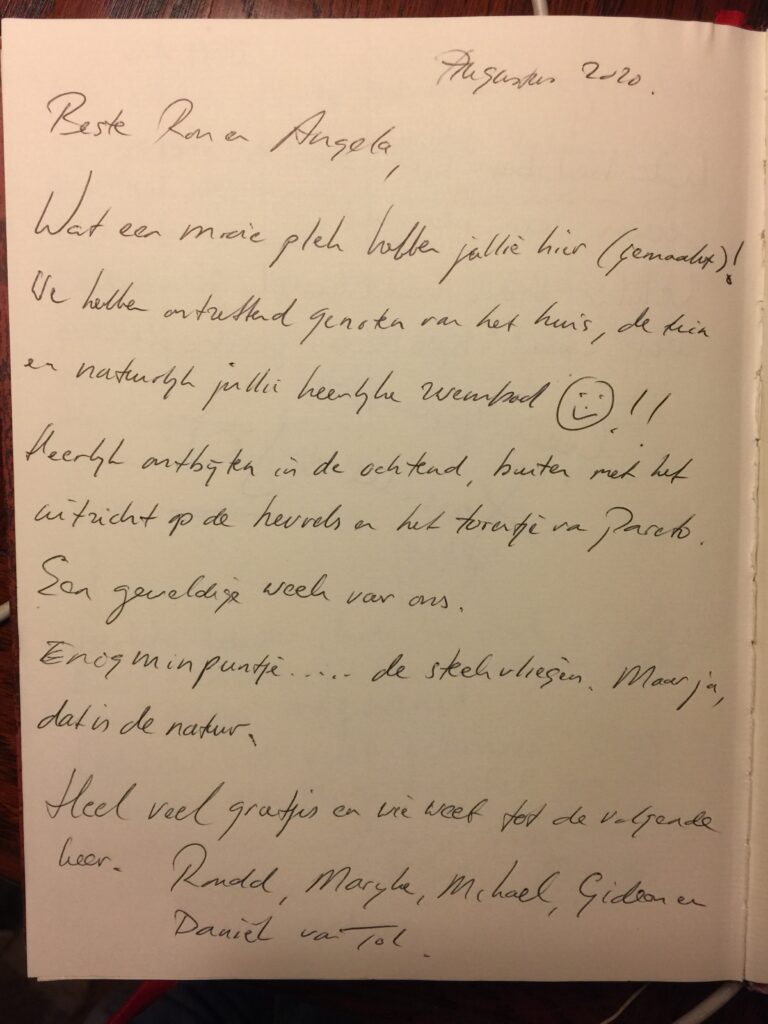 Augustus 2020.
Beste Ron en Angela,
Wat een mooie plek hebben jullie hier (gemaakt)!
We hebben ontzettend genoten van het huis, de tuin
en natuurlijk jullie heerlijke zwembad !!
Heerlijk ontbijten in de ochtend, buiten met het
uitzicht op de heuvels en het torentje van Pareto.
Een geweldige week voor ons.
Enig minpuntje..... de steekvliegen. Maar ja,
dat is de natuur.
Heel veel groetjes en wie weet tot de volgende
keer.
Ronald, Maryke, Michael, Gideon en
Daniël van Tol.